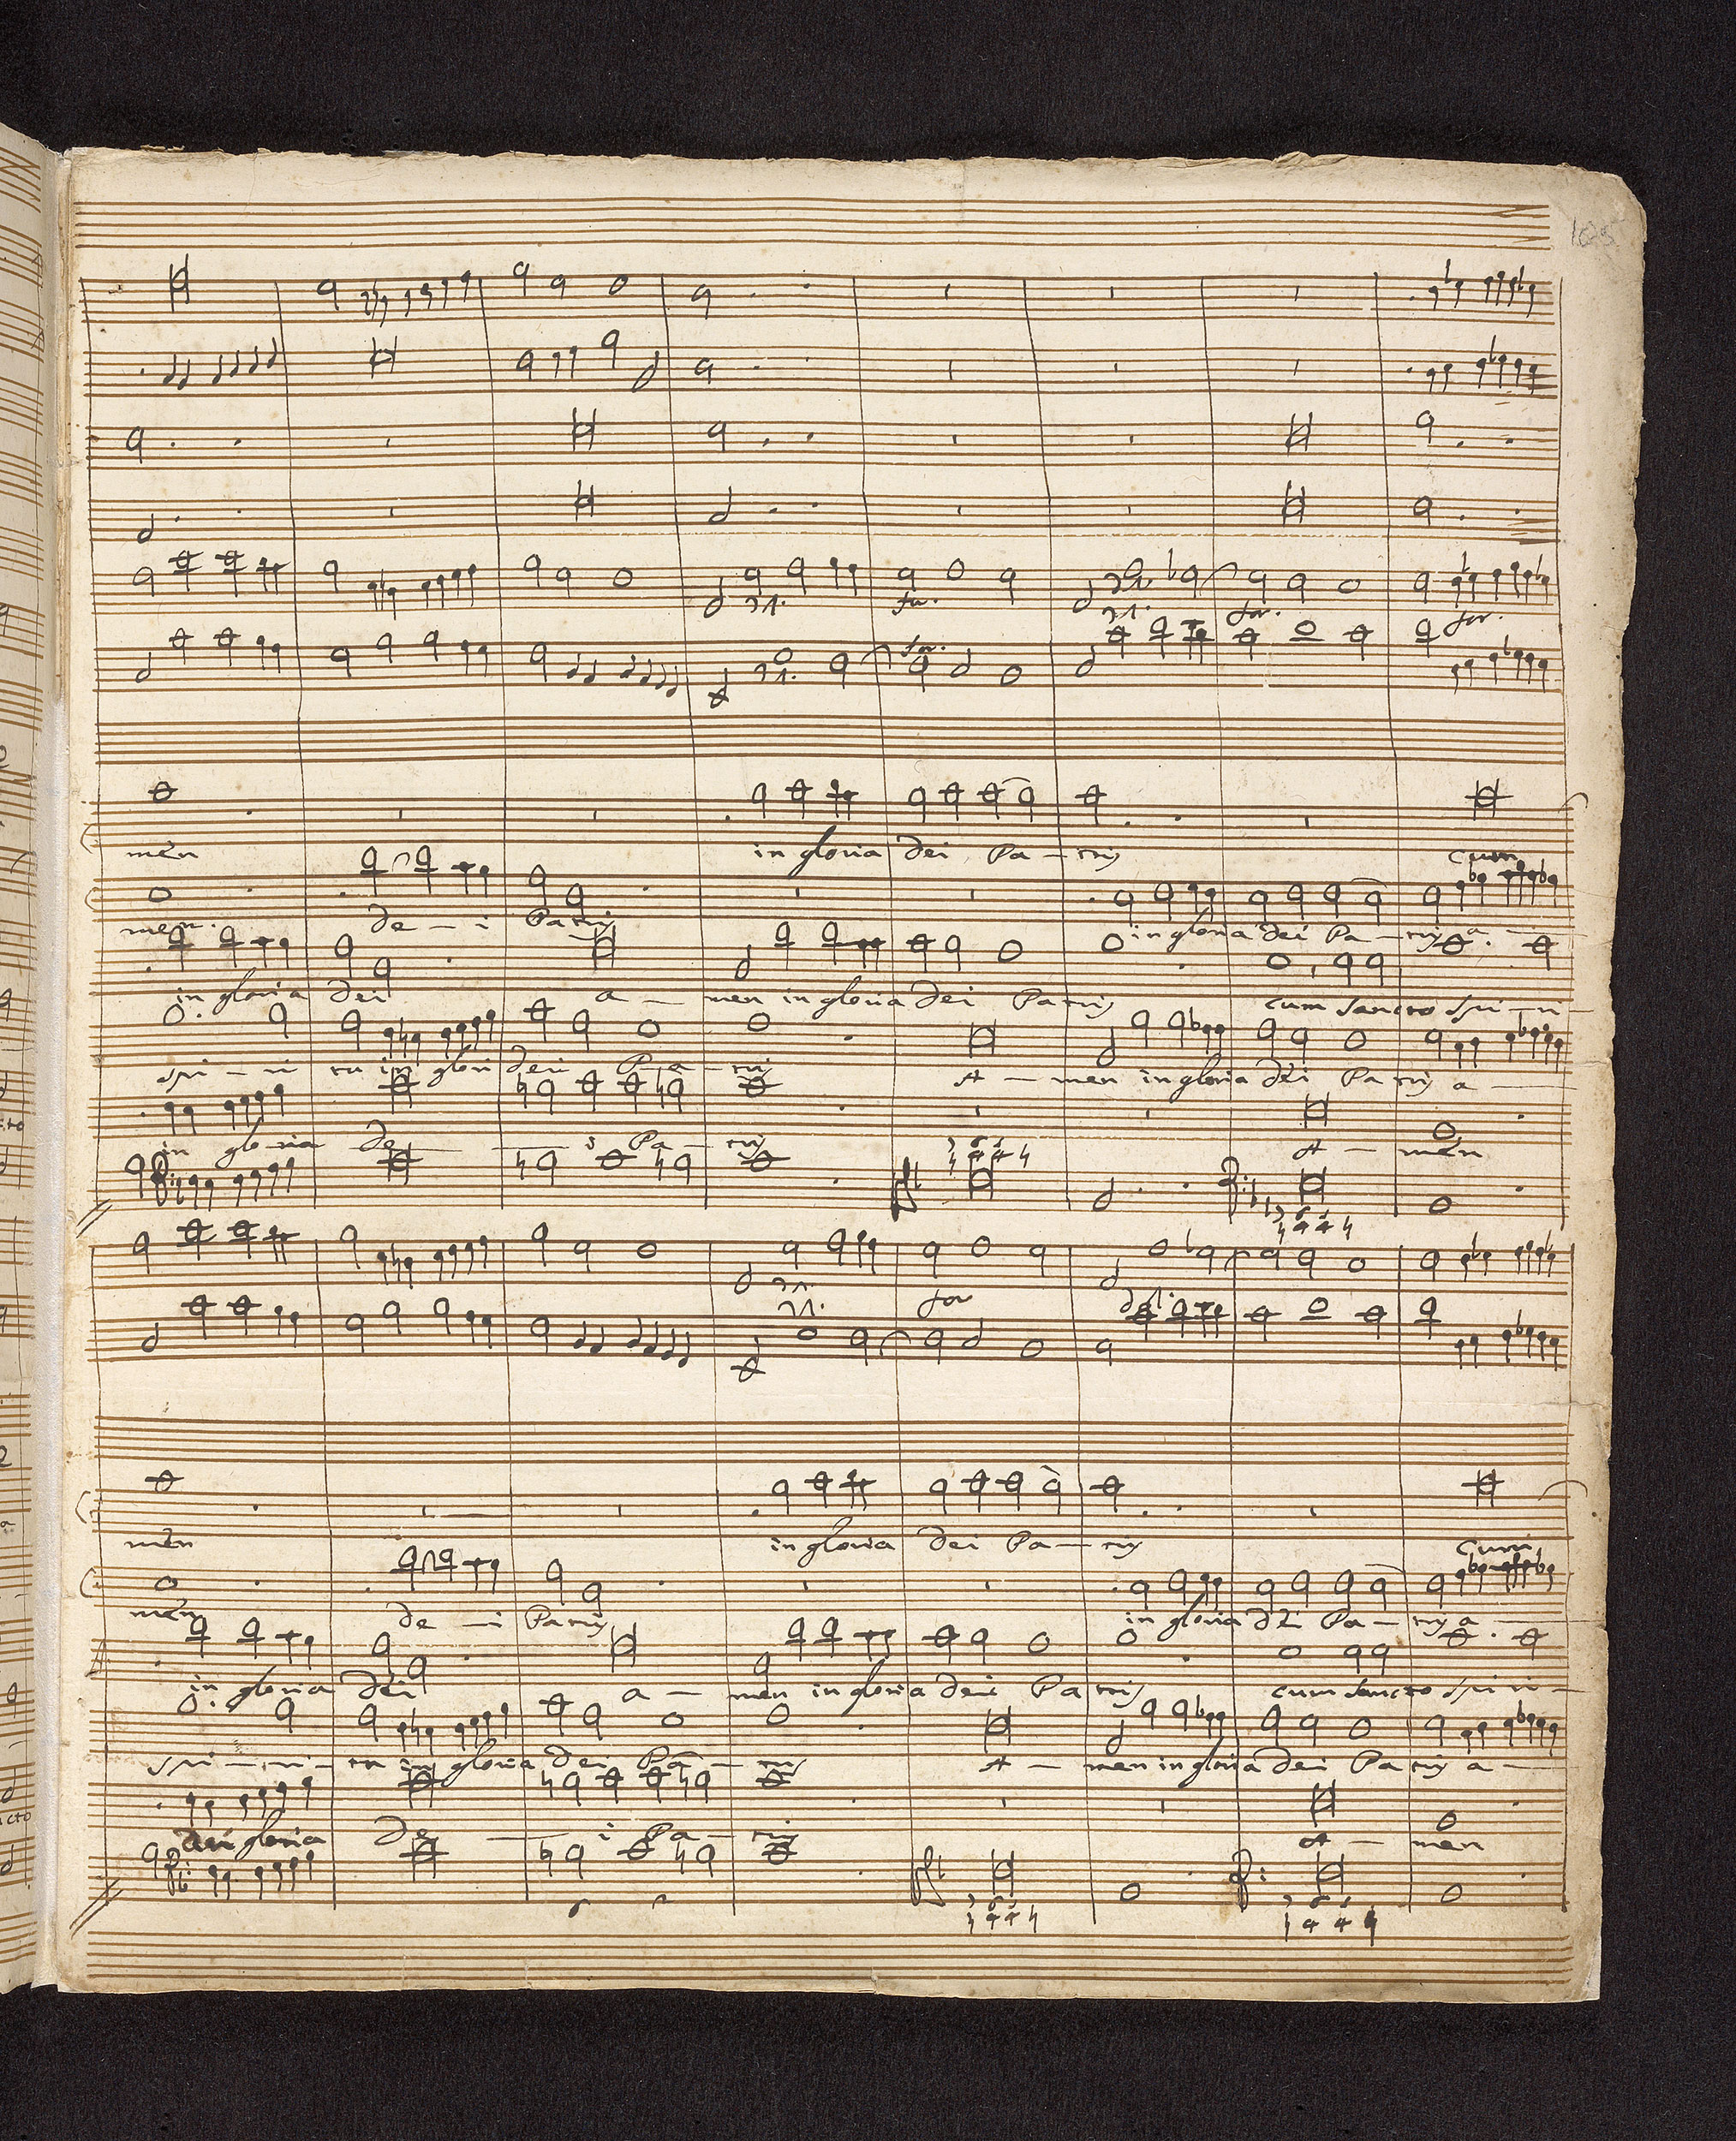 for.
for. for.
for.
men in gloria dei Pa - tris cum
men. de - i Patris in gloria dei Pa - tris a -
in gloria dei a - men in gloria dei Patris cum Sancto Spi - ri -
spi - ri tu in glori dei Pa - tris A - men in gloria dei Patris a -
in gloria De - i Pa - tris A - men
for
men in gloria dei Pa - tris cum
men de - i Patris in gloria dei Pa - tris a -
in gloria dei a - men in gloria dei Patris cum Sancto spiri -
spi - ri - tu in gloria dei Pa - tris A - men in gloria dei Patris a -
gloria De - i Pa - tris A - men